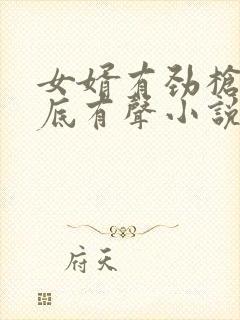 女婿有劲槍
底有聲小說
府天